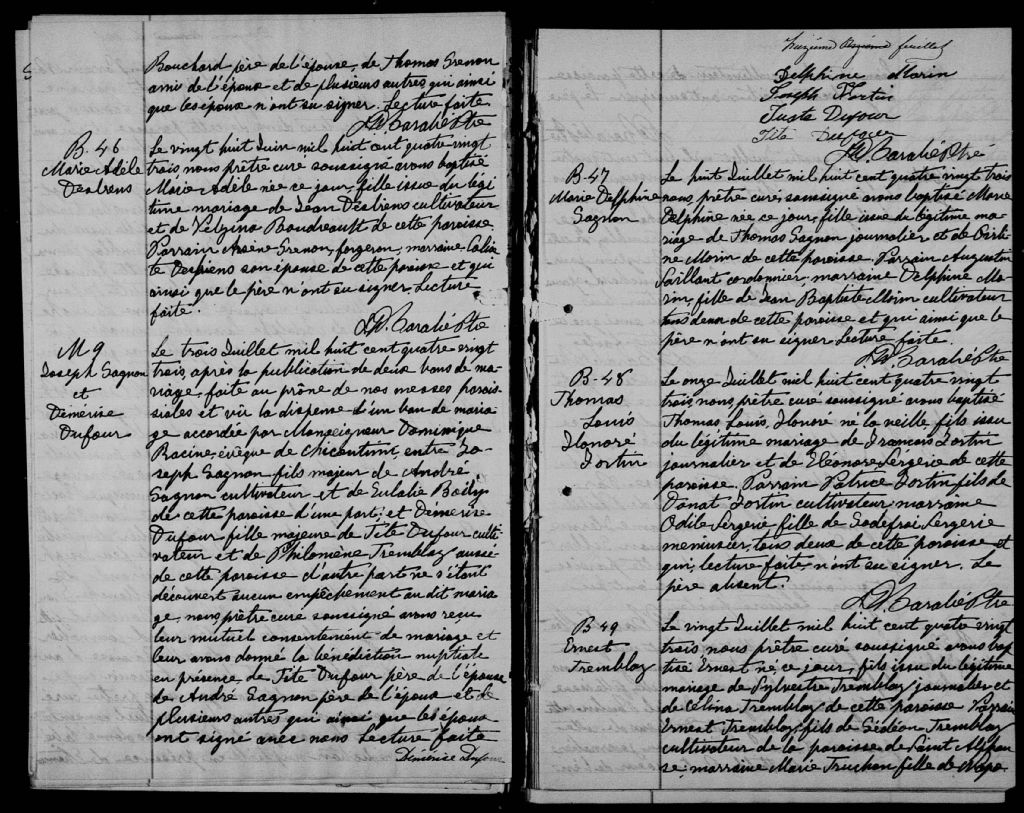 Bouchard père de l'épouse, de Thomas Grenon
ami de l'époux et de plusieurs autres qui ainsi
que les époux n'ont su signer. Lecture faite
Ptre
B. 46
Marie Adèle
Desbiens
Le vingt huit Juin mil huit cent quatre vingt
trois, nous prêtre curé soussigné avons baptisé
Marie Adèle née ce jour, fille issue du légi
time mariage de Jean Desbiens cultivateur
et de Boudreault de cette paroisse.
Parrain Arsène Grenon, forgeron, marraine
te Desbiens son épouse de cette paroisse et qui
ainsi que le père n'ont su signer. Lecture
faite.
Ptre
M 9
Joseph Gagnon
et
Démérise
Dufour
Le trois Juillet mil huit cent quatre vingt
trois, après la publication de deux bans de ma-
riage, faite au prône de nos messes parois-
siales et vu la dispense d'un ban de maria
ge accordée par Monseigneur Dominique
Racine, évêque de Chicoutimi, entre Jo-
seph Gagnon fils majeur de André
Gagnon cultivateur et de Eulalie Boily
de cette paroisse d'une part; et Démerise
Dufour fille majeure de Tite Dufour culti-
vateur et de Philomène Tremblay aussi
de cette paroisse d'autre part ne s'étant
découvert aucun empêchement au dit maria
ge, nous prêtre curé soussigné avons reçu
leur mutuel consentement de mariage et
leur avons donné la bénédiction nuptiale
en présence de Tite Dufour père de l'épouse
de André Gagnon père de l'époux et de
plusieurs autres qui ainsi que les époux
ont signé avec nous Lecture faite
Démérise Dufour
feuillet
Delphine Morin
Joseph Fortin
Juste Dufour
Tite Dufour
Ptre
B-47
Marie Delphine
Gagnon
Le huit Juillet mil huit cent quatre vingt trois
nous, prêtre curé, soussigné avons baptisé Marie
Delphine née ce jour, fille issue du légitime ma-
riage de Thomas Gagnon journalier et de
ne Morin de cette paroisse. Parrain Augustin
Gaillant cordonnier, marraine Delphine Mo-
rin, fille de Jean Baptiste Morin cultivateur
tous deux de cette paroisse et qui ainsi que le
père n'ont su signer Lecture faite.
Ptre
B-48
Thomas
Louis
Honoré
Fortin
Le onze Juillet mil huit cent quatre vingt
trois, nous, prêtre curé soussigné avons baptisé
Thomas Louis, Honoré né la veille fils issu
du légitime mariage de François Fortin
journalier et de Eléonore Lergerie de cette
paroisse. Parrain Patrice Fortin fils de
Donat Fortin cultivateur, marraine
Odile Lergerie fille de Godefroi Lergerie
menuisier, tous deux de cette paroisse et
qui, lecture faite, n'ont su signer. Le
père absent.
Ptre
B 49
Ernest
Tremblay
Le vingt Juillet mil huit cent quatre vingt
trois nous prêtre curé soussigné avons bap
tisé Ernest né ce jour, fils issu du légitime
mariage de Sylvestre Tremblay journalier et
de Célina Tremblay de cette paroisse Parrain
Ernest Tremblay, fils de Gédéon Tremblay
cultivateur de la paroisse de Saint Alphon
se, marraine Marie Truchon fille de